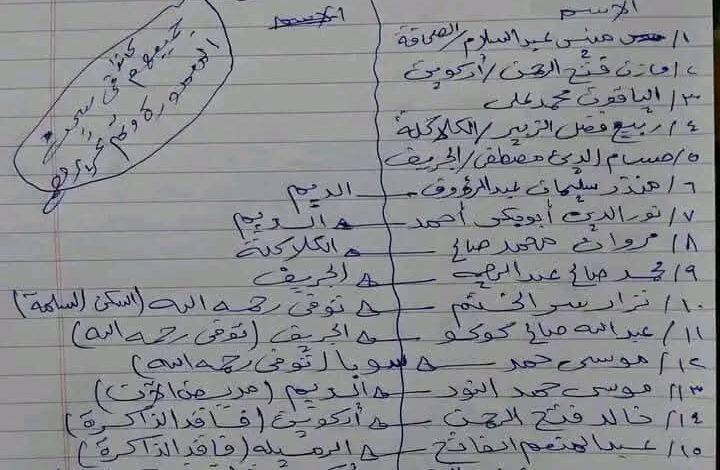 الإسم
١/ منس عبدالسلام/الصحافة
٢/ مازن فتح الرحمن/أركويت
٣/ الياقوت محمد علي
٤/ ربيع فضل الزبير/الكلاكلة
٥/ حسام الدين مصطفى/الجريف
٦/ منذر سليمان عبدالرؤوف ــ الديم
٧/ نورالدين أبوبكر أحمد ــ الديم
٨/ مروان محمد صالح ــ الكلاكلة
٩/ محمد صالح عبدالرحيم ــ الجريف
١٠/ نزار سر الختم ــ توفى رحمه الله (السكن السلمة)
١١/ عبدالله صالح كوكو ــ الجريف (توفى رحمه الله)
١٢/ موسى حمد ــ سوبا (توفى رحمه الله)
١٣/ موسى حمد النور ــ الديم (مريض الآن)
١٤/ خالد فتح الرحمن ــ أركويت (فاقد الذاكرة)
١٥/ عبدالمنعم الفاتح ــ الرميلة (فاقد الذاكرة)
الإسم
كانو
جميعهم في سجن